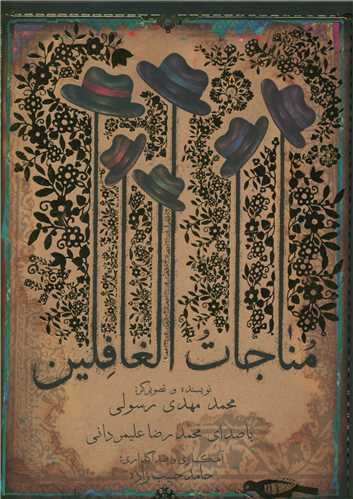 مُناجاتُ الغافِلین
نویسنده و تصویرگر:
محمد مهدی رسولی
با صدای محمدرضا علیمردانی
آهنگسازی و صداگذاری:
حامد حبیب زاده